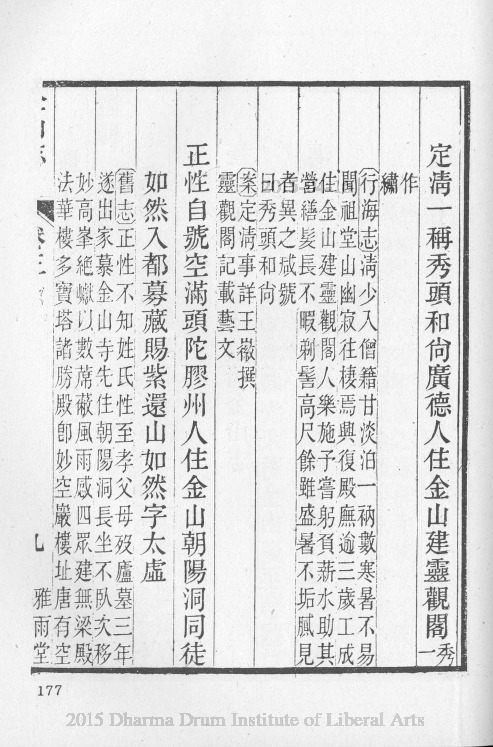 定淸一稱秀頭和尙廣德人住金山建靈觀閣秀一
作
繡
行海志淸少入僧籍甘淡泊一衲數寒暑不易
聞祖堂山幽寂往棲焉興復殿廡逾三歲工成
住金山建靈觀閣人樂施予嘗躬負薪水助其
營繕髮長不暇剃髻高尺餘雖盛暑不垢膩見
者異之咸號
曰秀頭和尙
案定淸事詳王嶶撰
靈觀閣記載藝文
正性自號空滿頭陀膠州人住金山朝陽洞同徒
如然入都募藏賜紫還山如然字太虛
舊志正性不知姓氏性至孝父母歿廬墓三年
遂出家慕金山寺先住朝陽洞長坐不臥次移
妙高峯絶巘以數蓆蔽風雨感四眾建無梁殿
法華樓多寶塔諸勝殿卽妙空巖樓址唐有空
志
卷三
九
雅雨堂
177
2015 Dharma Drum Institute of Liberal Arts